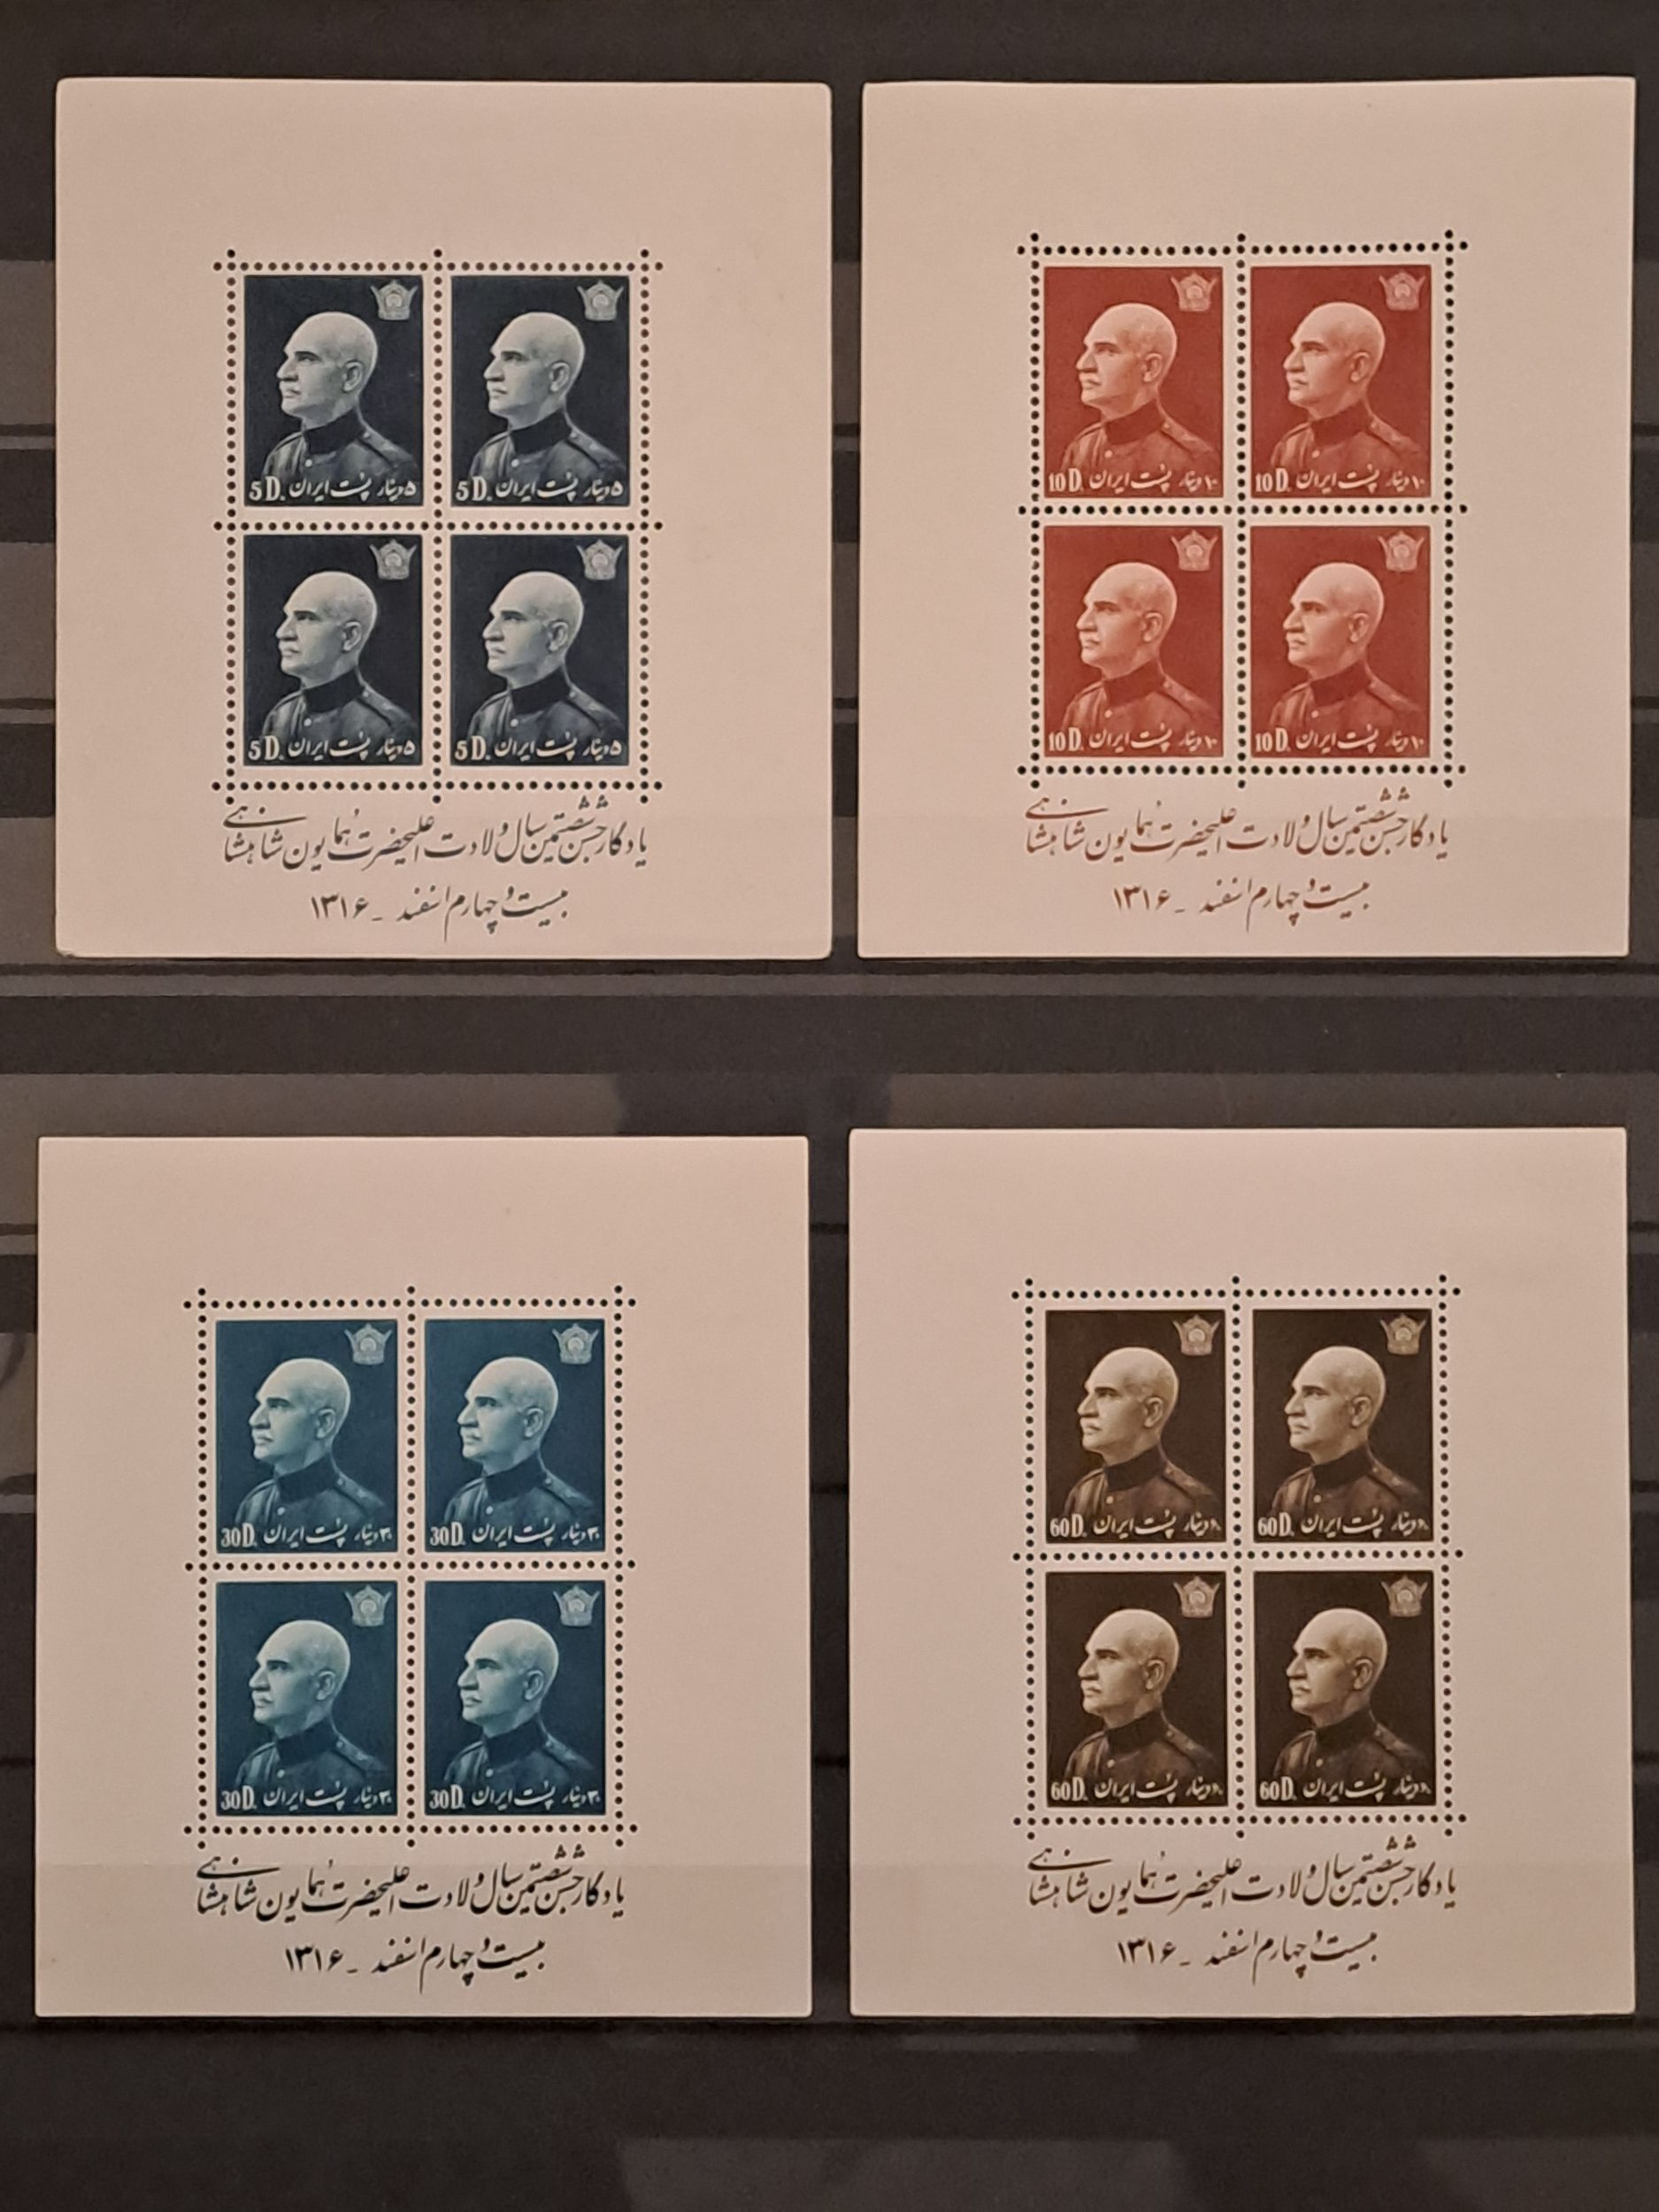 5 D. پست ایران ۵ دینار
5 D. پست ایران ۵ دینار
5 D. پست ایران ۵ دینار
5 D. پست ایران ۵ دینار
یادگار جشن شصتمین سال ولادت اعلیحضرت همایون شاهنشاهی
بیست و چهارم اسفند - ۱۳۱۶
10 D. پست ایران ۱۰ دینار
10 D. پست ایران ۱۰ دینار
10 D. پست ایران ۱۰ دینار
10 D. پست ایران ۱۰ دینار
یادگار جشن شصتمین سال ولادت اعلیحضرت همایون شاهنشاهی
بیست و چهارم اسفند - ۱۳۱۶
30 D. پست ایران ۳۰ دینار
30 D. پست ایران ۳۰ دینار
30 D. پست ایران ۳۰ دینار
30 D. پست ایران ۳۰ دینار
یادگار جشن شصتمین سال ولادت اعلیحضرت همایون شاهنشاهی
بیست و چهارم اسفند - ۱۳۱۶
60 D. پست ایران ۶۰ دینار
60 D. پست ایران ۶۰ دینار
60 D. پست ایران ۶۰ دینار
60 D. پست ایران ۶۰ دینار
یادگار جشن شصتمین سال ولادت اعلیحضرت همایون شاهنشاهی
بیست و چهارم اسفند - ۱۳۱۶